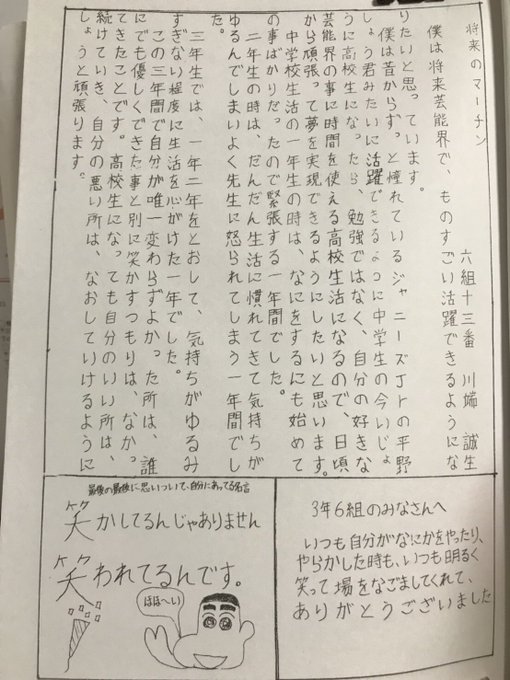 将来のマーチン
六組十三番 川端 誠生
僕は将来芸能界で、ものすごい活躍できるようにな
りたいと思っています。
僕は昔からずっと憧れているジャニーズJrの平野
しょう君みたいに活躍できるように中学生の今いじょ
うに高校生になったら、勉強ではなく、自分の好きな
芸能界の事に時間を使える高校生活になるので、日頃
から頑張って夢を実現できるようにしたいと思います。
中学校生活の一年生の時は、なにをするにも始めて
の事ばかりだったので緊張する一年間でした。
二年生の時は、だんだん生活に慣れてきて気持ちが
ゆるんでしまいよく先生に怒られてしまう一年間でし
た。
三年生では、一年二年をとおして、気持ちがゆるみ
すぎない程度に生活を心がけた一年でした。
この三年間で自分が唯一変わらずよかった所は、誰
にでも優しくできた事と別に笑かすつもりは、なかっ
てきたことです。高校生になっても自分のいい所は、
続けていき、自分の悪い所は、なおしていけるように
しょうと頑張ります。
最後の最後に思いついて、自分にあってる名言
笑かしてるんじゃありません
笑われてるんです。
ケケ
ケケ
ほほへい
3年6組のみなさんへ
いつも自分がなにかをやったり、
やらかした時も、いつも明るく
笑って場をなごましてくれて、
ありがとうございました